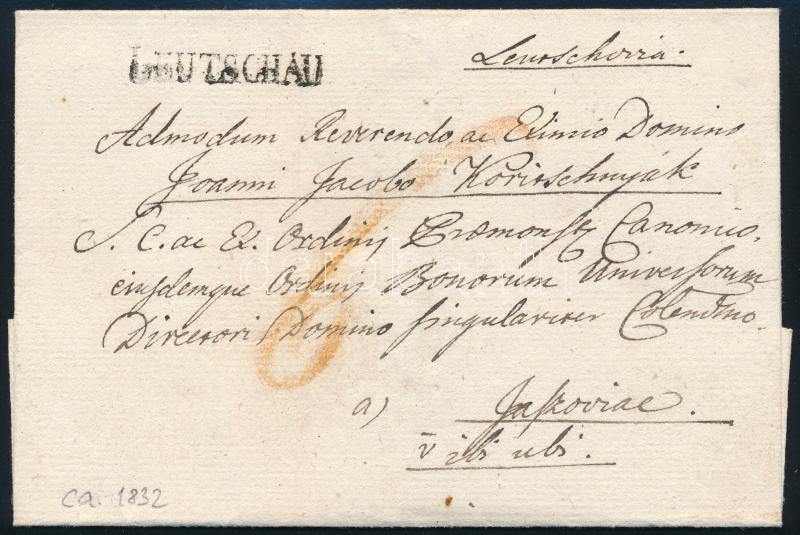 LEUTSCHAU
Leutschovia.
Admodum Reverendo, ac Eximio Domino
Joanni Jacobo Koritschnyák
S. C. ac Ex. Ordinis Præmonst. Canonico,
ejusdemque Ordinis Bonorum Universorum
Directori Domino singulariter Colendmo.
a) Jaszoviae.
v ibi ubi.
ca. 1832